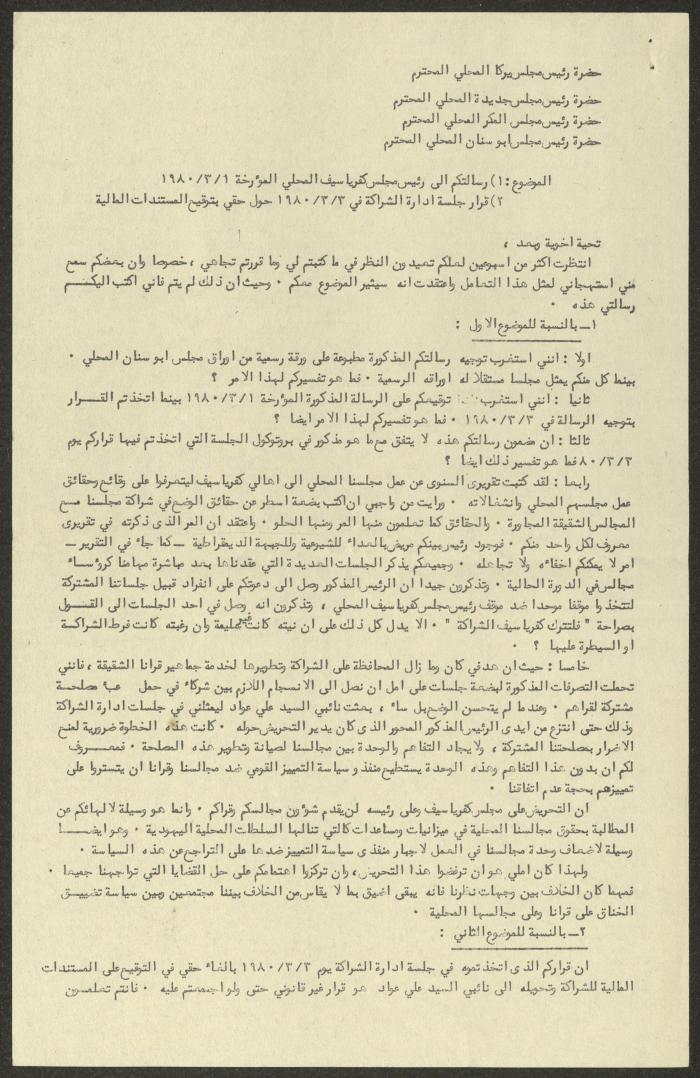 حضرة رئيس مجلس يركا المحلي المحترم
حضرة رئيس مجلس جديدة المحلي المحترم
حضرة رئيس مجلس المكر المحلي المحترم
حضرة رئيس مجلس ابو سنان المحلي المحترم
الموضوع : ١) رسالتكم الى رئيس مجلس كفرياسيف المحلي المؤرخة ١/٣/١٩٨٠
٢) قرار جلسة ادارة الشراكة في ٣/٣/١٩٨٠ حول حقي بتوقيع المستندات المالية
تحية اخوية وبعد ،
انتظرت اكثر من اسبوعين لعلكم تعيدون النظر في ما كتبتم لي وما قررتم تجاهي ، خصوصا وان بعضكم سمع
مني استهجاني لمثل هذا التعامل واعتقدت انه سيثير الموضوع معكم ٠ وحيث ان ذلك لم يتم فاني اكتب اليكم
رسالتي هذه ٠
١ـ بالنسبة للموضوع الاول :
اولا : انني استغرب توجيه رسالتكم المذكورة مطبوعة على ورقة رسمية من اوراق مجلس ابو سنان المحلي ٠
بينما كل منكم يمثل مجلسا مستقلا له اوراقه الرسمية ٠ فما هو تفسيركم لهذا الامر ؟
ثانيا : انني استغرب توقيعكم على الرسالة المذكورة المؤرخة ١/٣/١٩٨٠ بينما اتخذتم القرار
بتوجيه الرسالة في ٣/٣/١٩٨٠ ٠ فما هو تفسيركم لهذا الامر ايضا ؟
ثالثا : ان مضمون رسالتكم هذه لا يتفق مع ما هو مذكور في بروتوكول الجلسة التي اتخذتم فيها قراركم يوم
٣/٣/٨٠ فما هو تفسير ذلك ايضا ؟
رابعا : لقد كتبت تقريري السنوى عن عمل مجلسنا المحلي الى اهالي كفرياسيف ليتعرفوا على وقائع وحقائق
عمل مجلسهم المحلي وانشغالاته ٠ ورايت من واجبي ان اكتب بضعة اسطر عن حقائق الوضع في شراكة مجلسنا مع
المجالس الشقيقة المجاورة ٠ والحقائق كما تعلمون منها المر ومنها الحلو ٠ واعتقد ان المر الذى ذكرته في تقريرى
معروف لكل واحد منكم ٠ فوجود رئيس بينكم مريض بالعداء للشيوعية وللجبهة الديمقراطية ـ كما جاء في التقرير ـ
امر لا يمكنكم اخفاءه ولا تجاهله ٠ وجميعكم يذكر الجلسات العديدة التي عقدناها بعد مباشرة مهامنا كرؤساء
مجالس في الدورة الحالية ٠ وتذكرون جيدا ان الرئيس المذكور وصل الى دعوتكم على انفراد قبيل جلساتنا المشتركة
لتتخذوا موقفا موحدا ضد موقف رئيس مجلس كفرياسيف المحلي ، وتذكرون انه وصل في احد الجلسات الى القول
بصراحة " فلتترك كفرياسيف الشراكة " ٠ الا يدل كل ذلك على ان نيته كانت غير سليمة وان رغبته كانت فرط الشراكة
او السيطرة عليها ؟ ٠
خامسا : حيث ان هدفي كان وما زال المحافظة على الشراكة وتطويرها لخدمة جماهير قرانا الشقيقة ، فانني
تحملت التصرفات المذكورة لبضعة جلسات على امل ان نصل الى الانسجام اللازم بين شركاء في حمل عبء مصلحة
مشتركة لقراهم ٠ وعندما لم يتحسن الوضع بل ساء ، بعثت نائبي السيد علي عواد ليمثلني في جلسات ادارة الشراكة
وذلك حتى انتزع من ايدى الرئيس المذكور المحور الذى كان يدير التحريض حوله ٠ كانت هذه الخطوة ضرورية لمنع
الاضرار بمصلحتنا المشتركة ، ولايجاد التفاهم والوحدة بين مجالسنا لصيانة وتطوير هذه المصلحة ٠ فمعروف
لكم ان بدون هذا التفاهم وهذه الوحدة يستطيع منفذو سياسة التمييز القومي ضد مجالسنا وقرانا ان يتستروا على
تمييزهم بحجة عدم اتفاقنا ٠
ان التحريض على مجلس كفرياسيف وعلى رئيسه لن يقدم شؤون مجالسكم وقراكم ٠ وانما هو وسيلة لالهائكم عن
المطالبة بحقوق مجالسنا المحلية في ميزانيات ومساعدات كالتي تنالها السلطات المحلية اليهودية ٠ وهو ايضا
وسيلة لاضعاف وحدة مجالسنا في العمل لاجبار منفذى سياسة التمييز ضدها على التراجع عن هذه السياسة ٠
ولهذا كان املي هو ان ترفضوا هذا التحريض ، وان تركزوا اهتمامكم على حل القضايا التي تواجهنا جميعا ٠
فمهما كان الخلاف بين وجهات نظرنا فانه يبقى اضيق بما لا يقاس من الخلاف بيننا مجتمعين وبين سياسة تضييق
الخناق على قرانا وعلى مجالسها المحلية ٠
٢ـ بالنسبة للموضوع الثاني :
ان قراركم الذى اتخذتموه في جلسة ادارة الشراكة يوم ٣/٣/١٩٨٠ بالغاء حقي في التوقيع على المستندات
المالية للشراكة وتحويله الى نائبي السيد علي عواد هو قرار غير قانوني حتى ولو اجمعتم عليه ٠ فانتم تعلمون